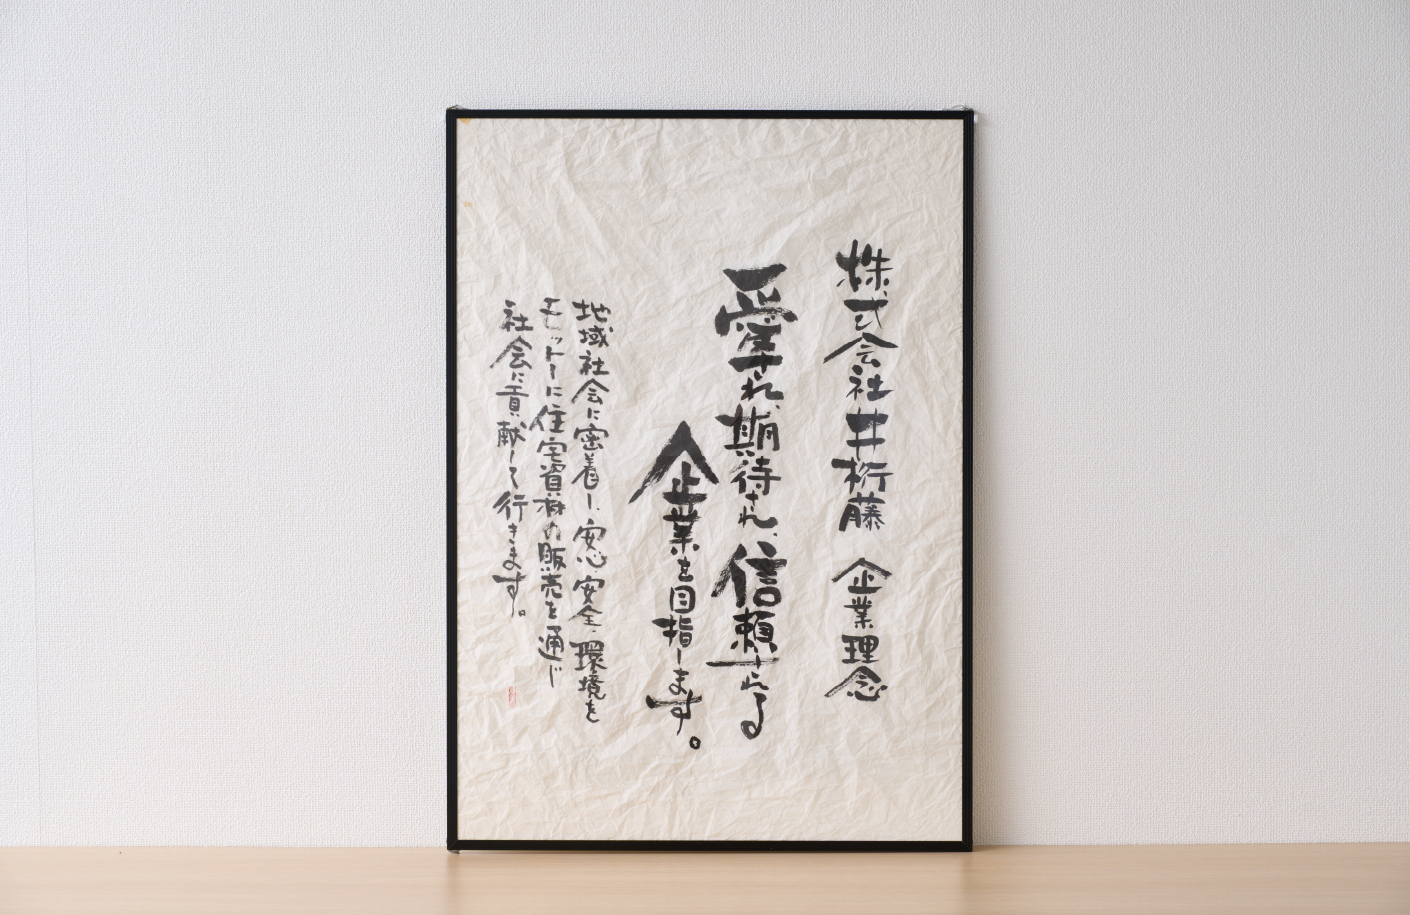 株式会社井桁藤 企業理念
愛され、期待され、信頼される
企業を目指します。
地域社会に密着し、安心・安全・環境を
モットーに住宅資材の販売を通じ
社会に貢献して行きます。